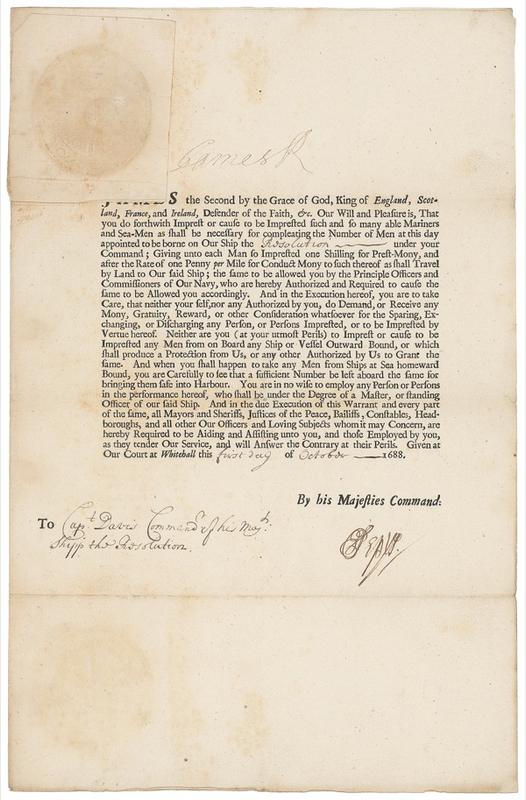 James R
JAMES the Second by the Grace of God, King of England, Scot-
land, France, and Ireland, Defender of the Faith, &c. Our Will and Pleasure is, That
you do forthwith Imprest or cause to be Impreſted ſuch and ſo many able Mariners
and Sea-Men as ſhall be neceſſary for compleating the Number of Men at this day
appointed to be borne on Our Ship the Resolution under your
Command; Giving unto each Man ſo Impreſted one Shilling for Preſt-Mony, and
after the Rate of one Penny per Mile for Conduct Mony to ſuch thereof as ſhall Travel
by Land to Our ſaid Ship; the ſame to be allowed you by the Principle Officers and
Commiſſioners of Our Navy, who are hereby Authorized and Required to cauſe the
ſame to be Allowed you accordingly. And in the Execution hereof, you are to take
Care, that neither your ſelf, nor any Authorized by you, do Demand, or Receive any
Mony, Gratuity, Reward, or other Conſideration whatſoever for the Sparing, Ex-
changing, or Diſcharging any Perſon, or Perſons Impreſted, or to be Impreſted by
Vertue hereof. Neither are you (at your utmoſt Perils) to Impreſt or cauſe to be
Impreſted any Men from on Board any Ship or Veſſel Outward Bound, or which
ſhall produce a Protection from Us, or any other Authorized by Us to Grant the
ſame. And when you ſhall happen to take any Men from Ships at Sea homeward
Bound, you are Carefully to ſee that a ſufficient Number be left aboard the ſame for
bringing them ſafe into Harbour. You are in no wiſe to employ any Perſon or Perſons
in the performance hereof, who ſhall be under the Degree of a Maſter, or ſtanding
Officer of our ſaid Ship. And in the due Execution of this Warrant and every part
of the ſame, all Mayors and Sheriffs, Juſtices of the Peace, Bailiffs, Conſtables, Head-
boroughs, and all other Our Officers and Loving Subjects whom it may Concern, are
hereby Required to be Aiding and Aſſiſting unto you, and thoſe Employed by you,
as they tender Our Service, and will Anſwer the Contrary at their Perils. Given at
Our Court at Whitehall this first day of October 1688.
By his Majeſties Command:
To Capt. Davis Commandr. of his Maj.
Shipp the Resolution.
SPepys.